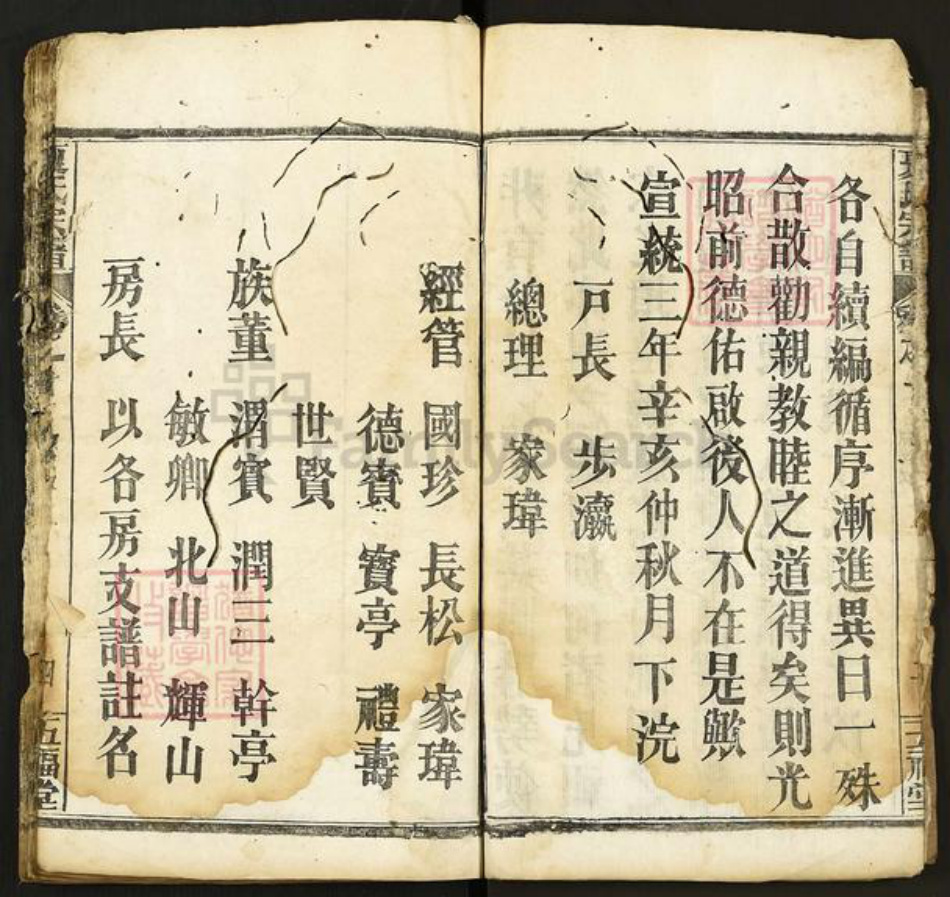 各自續編循序漸進異日一殊
合散勸親教睦之道得矣則光
昭前德佑啟後人不在是歟
宣統三年辛亥仲秋月下浣
戸長 步瀛
總理 家瑋
經管 國珍 長松 家瑋
德賓 寶亭 禮壽
世賢
族董 渭賓 潤三 幹亭
敏卿 北山 輝山
房長 以各房支譜註名
五福堂
FamilySearch